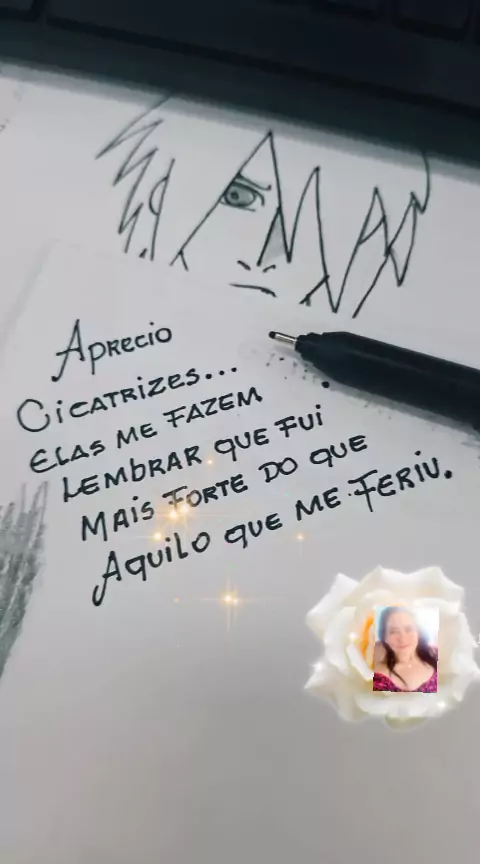 Aprecio
Cicatrizes...
Elas me fazem
lembrar que fui
mais forte do que
Aquilo que me feriu.